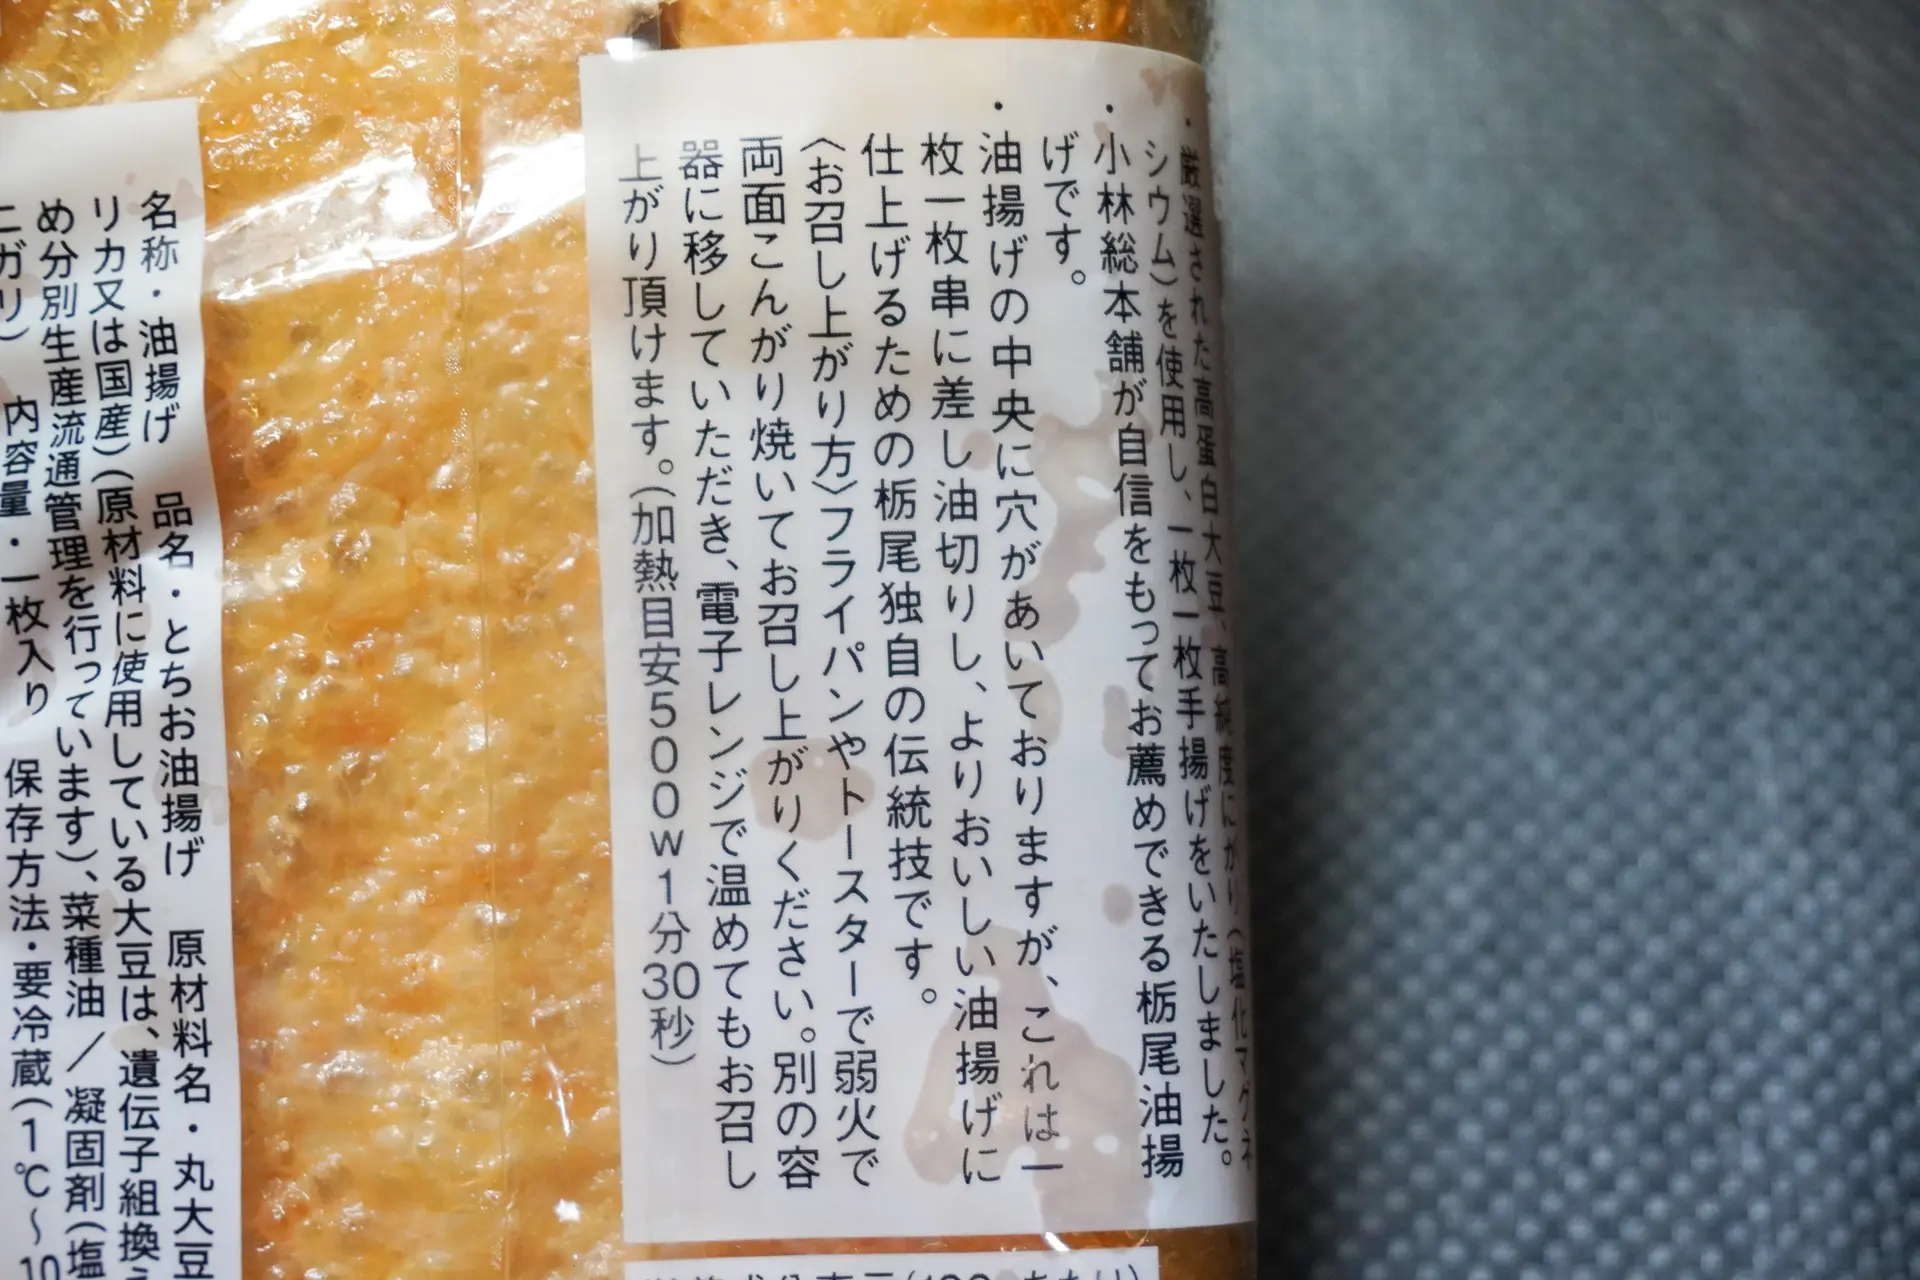 ・厳選された高蛋白大豆、高純度にがり(塩化マグネ
シウム)を使用し、一枚一枚手揚げをいたしました。
・小林総本舗が自信をもってお薦めできる栃尾油揚
げです。
・油揚げの中央に穴があいておりますが、これは一
枚一枚串に差し油切りし、よりおいしい油揚げに
仕上げるための栃尾独自の伝統技です。
〈お召し上がり方〉フライパンやトースターで弱火で
両面こんがり焼いてお召し上がりください。別の容
器に移していただき、電子レンジで温めてもお召し
上がり頂けます。(加熱目安500w1分30秒)
名称・油揚げ 品名・とちお油揚げ 原材料名・丸大豆
リカ又は国産)(原材料に使用している大豆は、遺伝子組換
め分別生産流通管理を行っています)、菜種油／凝固剤(塩
ニガリ) 内容量・一枚入り 保存方法・要冷蔵(1℃～10